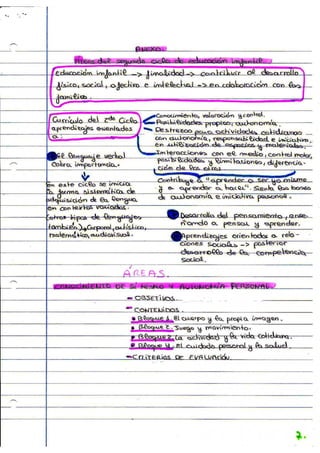 ANEXO.
Fines del segundo ciclo de educación infantil.
Educación infantil —> finalidad —> contribuir al desarrollo
físico, social, afectivo e intelectual —> en colaboración con las
familias.
Currículo del 2do Ciclo
aprendizajes orientados
a:
Conocimiento, valoración y control.
Posibilidades propias, autonomía.
Destreza para actividades cotidianas
con autonomía, responsabilidad e iniciativa,
en utilización de espacios y materiales.
Interacciones con el medio, control motor,
posibilidades y limitaciones, diferencia-
ción de los otros
El lenguaje verbal
cobra importancia.
Contribuye a "aprender a ser yo mismo
y a aprender a hacer". Sienta las bases
de autonomía e iniciativa personal.
En este ciclo se inicia
la forma sistemática de
adquisición de la lengua
en contextos variados.
Otros tipos de lenguajes
también) Corporal, artístico,
matemático, audiovisual.
Desarrollo del pensamiento, ense-
ñando a pensar y aprender.
Aprendizajes orientados a rela-
ciones sociales —> posterior
desarrollo de la competencia
social.
ÁREAS.
CONOCIMIENTO DE SÍ MISMO Y AUTONOMÍA PERSONAL.
- OBJETIVOS.
- CONTENIDOS:
Bloque 1. El cuerpo y la propia imagen.
Bloque 2. Juego y movimiento.
Bloque 3. La actividad y la vida cotidiana.
Bloque 4. El cuidado personal y la salud.
- CRITERIOS DE EVALUACIÓN.
2.